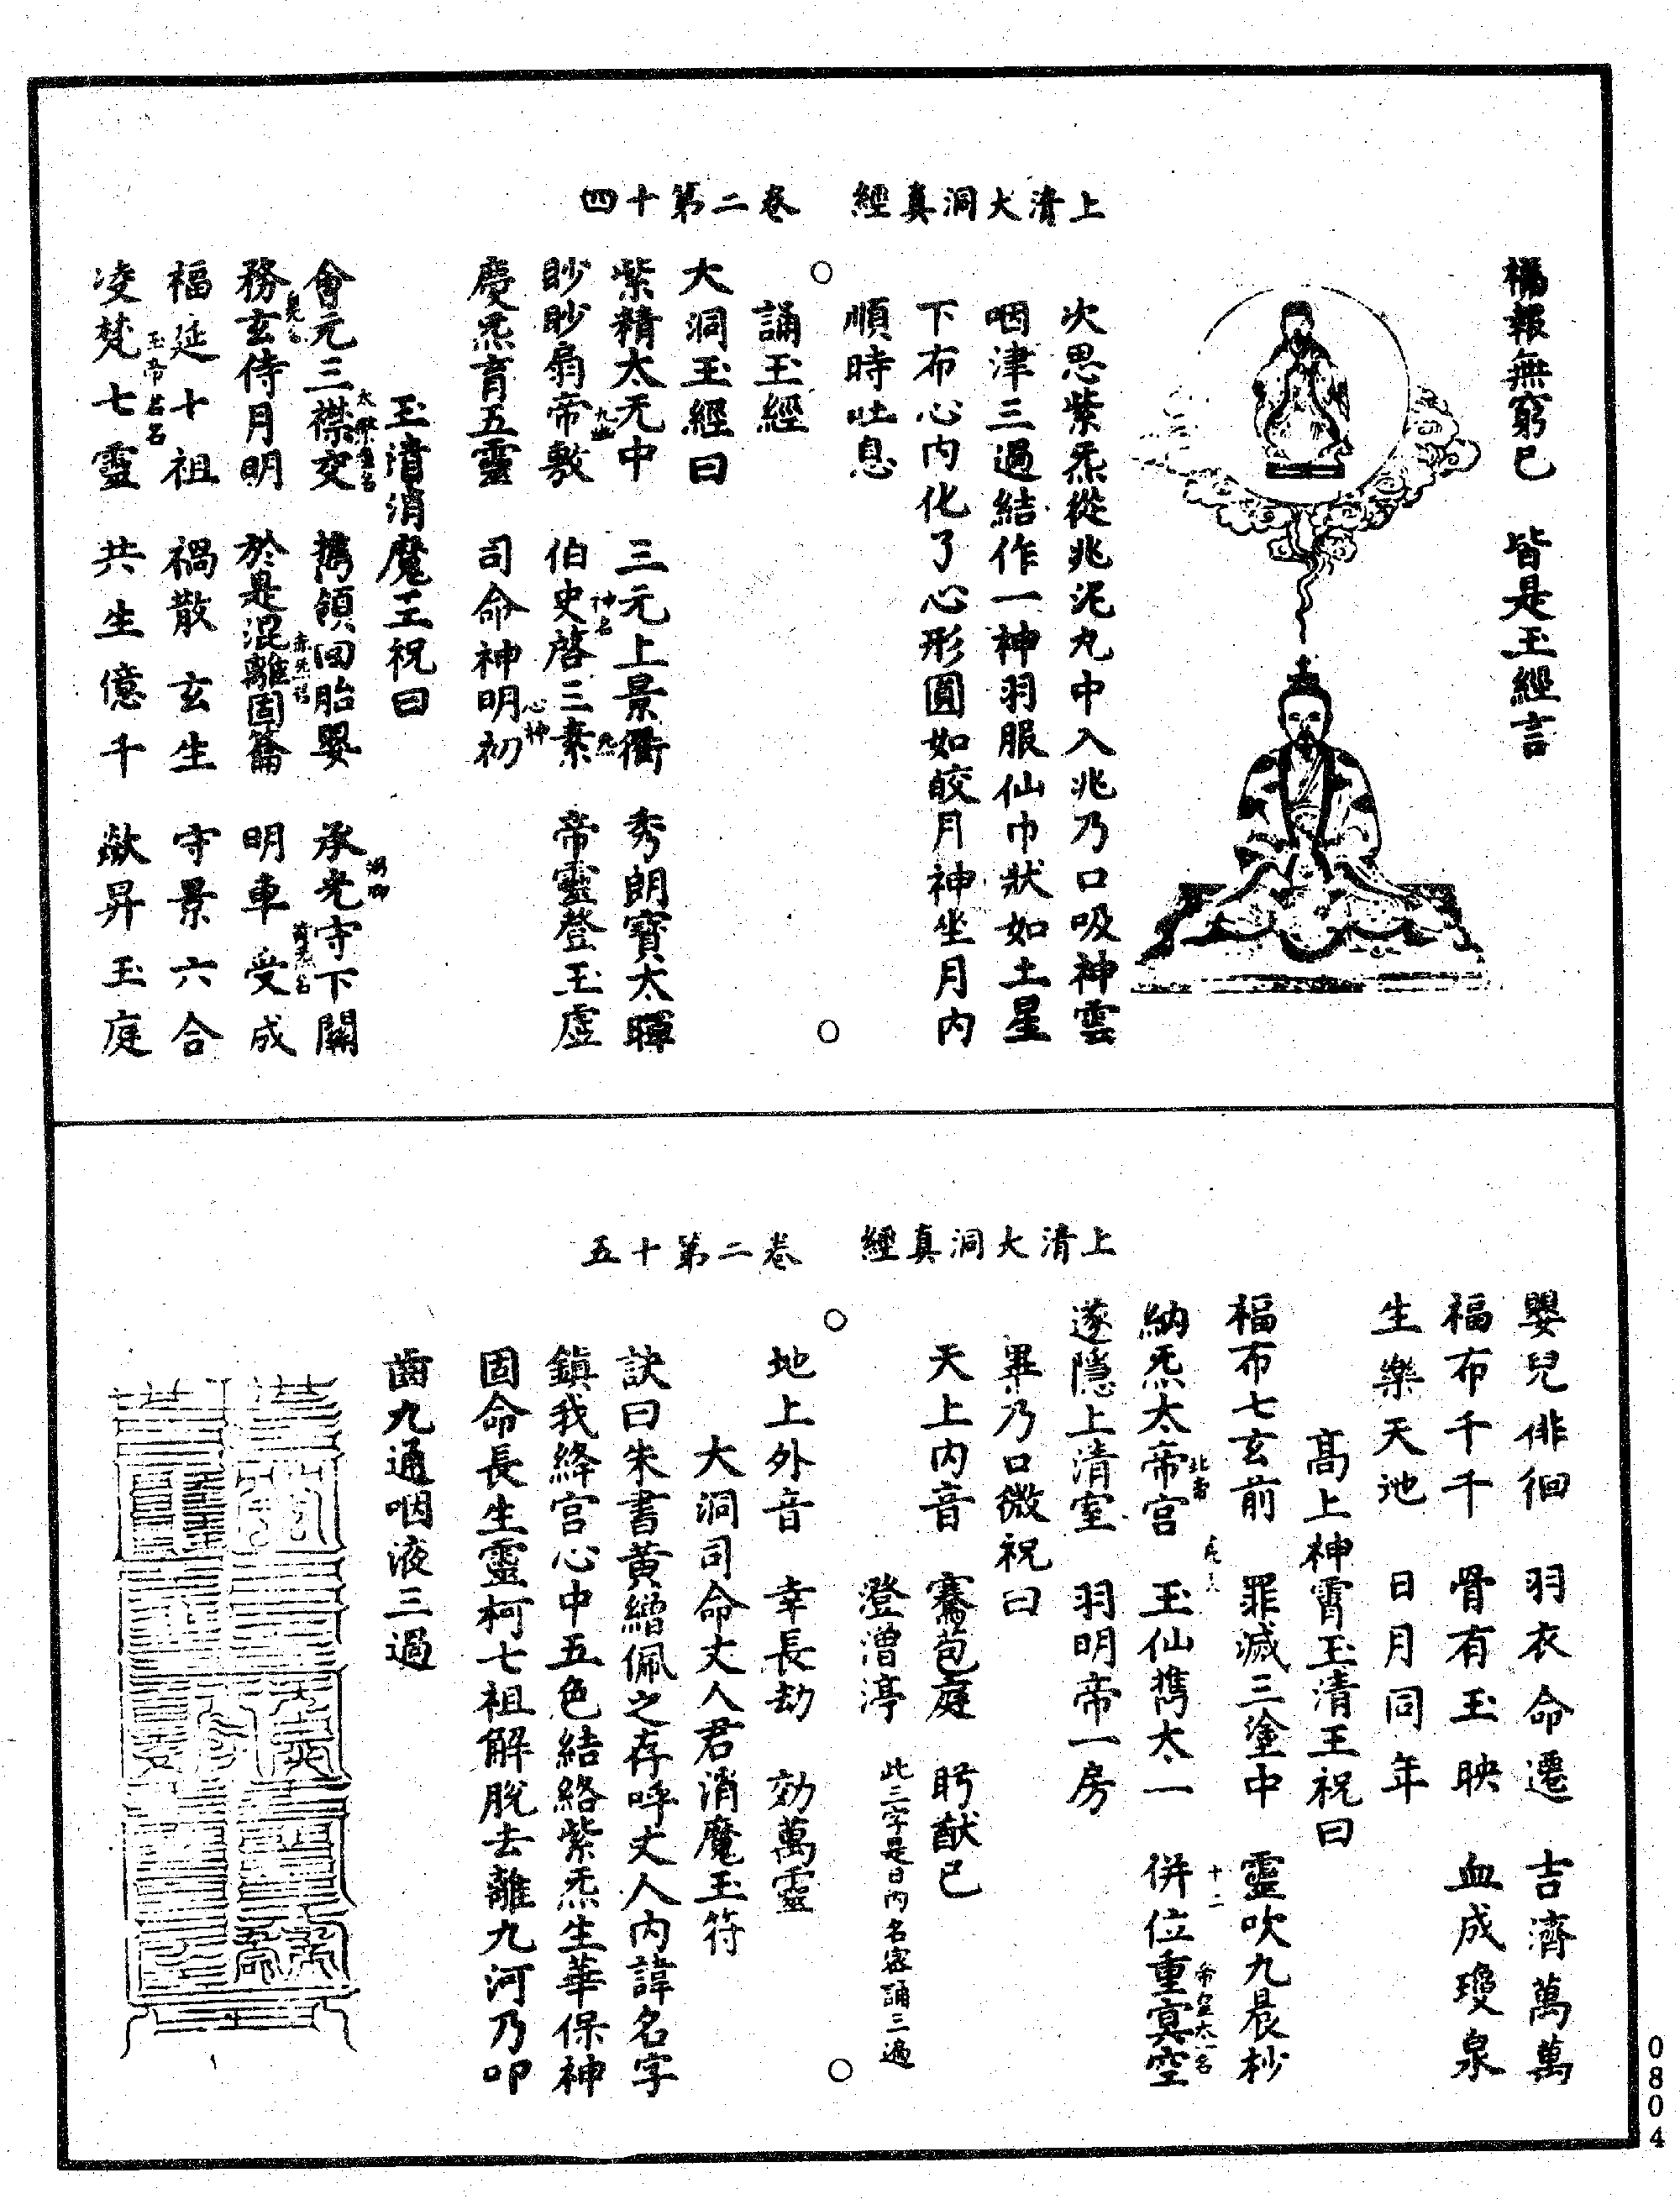 上清大洞真經　卷二第十四
禍報無窮已　皆是玉經言
次思紫炁從兆泥丸中入兆乃口吸神雲
咽津三過結作一神羽服仙巾狀如土星
下布心內化了心形圓如皎月神坐月內
順時吐息
○　○
誦玉經
大洞玉經曰
紫精太无中　三元上景衢　秀朗寶太暉
眇眇扇帝敷　伯史啓三素　帝靈登玉虛
九幽　神名　炁
慶炁育五靈　司命神明初
心神
玉清消魔王祝曰
會元三襟交　擕領回胎嬰　承光守下關
務玄侍月明　於是混離固籥　明車受成
福延十祖　禍散玄生　守景六合
凌梵七靈　共生億千　歘昇玉庭
玉帝君名
上清大洞真經　卷二第十五
嬰兒徘徊　羽衣命遷　吉濟萬萬
福布千千　骨有玉映　血成瓊泉
生樂天地　日月同年
高上神霄玉清王祝曰
福布七玄前　罪滅三塗中　靈吹九晨杪
納炁太帝宮　玉仙擕太一　併位重寞空
十二　帝皇太一名
遂隱上清室　羽明帝一房
畢乃口微祝曰
天上內音　騫苞庭　眄猷已
澄澝渟　此三字是日內名密誦三遍
○　○
地上外音　幸長劫　効萬靈
大洞司命丈人君消魔玉符
訣曰朱書黃繒佩之存呼丈人內諱名字
鎮我絳宮心中五色結絡紫炁生華保神
固命長生靈柯七祖解脫去離九河乃叩
齒九通咽液三過
0804